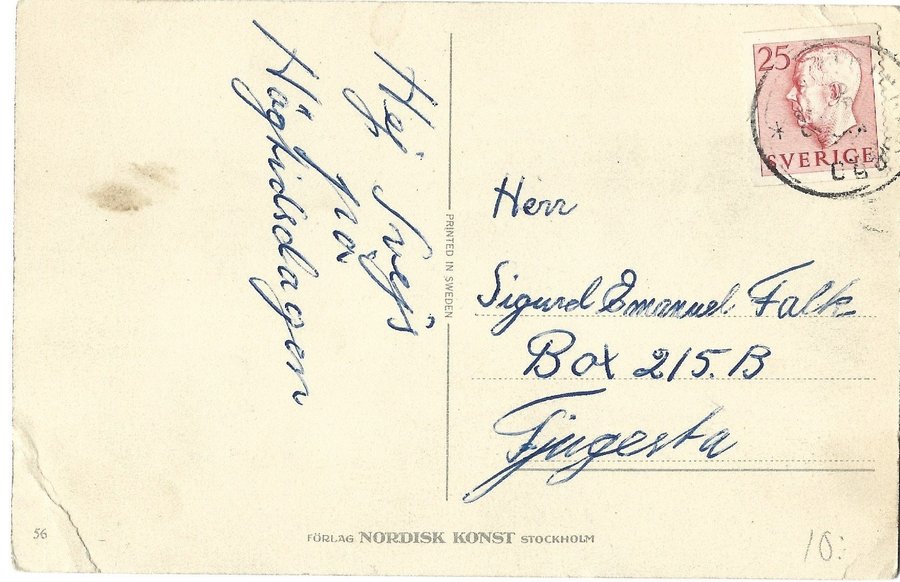 Hej Svejs
på
Högtidsdagen
PRINTED IN SWEDEN
25
SVERIGE
Herr
Sigurd Emanuel Falk
Box 215.B
Fjugesta
56
FÖRLAG NORDISK KONST STOCKHOLM
10: